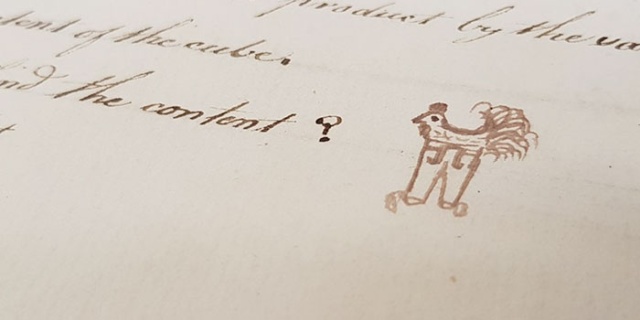 product by the va
of the cube.
the content ?